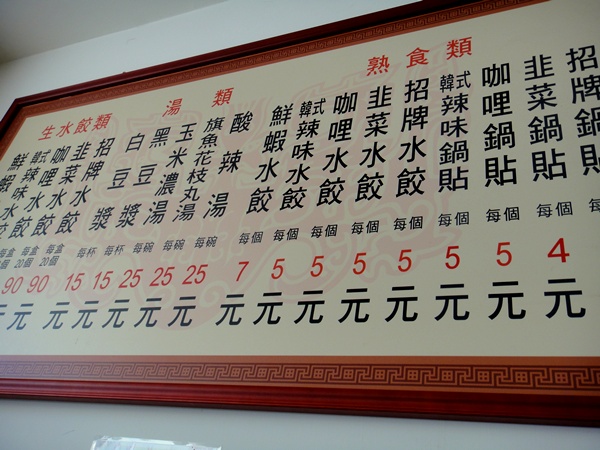 熟食類
招牌鍋貼
韭菜鍋貼 每個 4元
咖哩鍋貼 每個 5元
韓式辣味鍋貼 每個 5元
招牌水餃 每個 5元
韭菜水餃 每個 5元
咖哩水餃 每個 5元
韓式辣味水餃 每個 5元
鮮蝦水餃 每個 7元
湯類
酸辣湯 每碗 25元
旗魚花枝丸湯 每碗 25元
玉米濃湯 每碗 25元
黑豆漿 每杯 15元
白豆漿 每杯 15元
生水餃類
招牌水餃 每盒20個 90元
韭菜水餃 每盒20個 90元
咖哩水餃
韓式辣味水餃
鮮蝦水餃